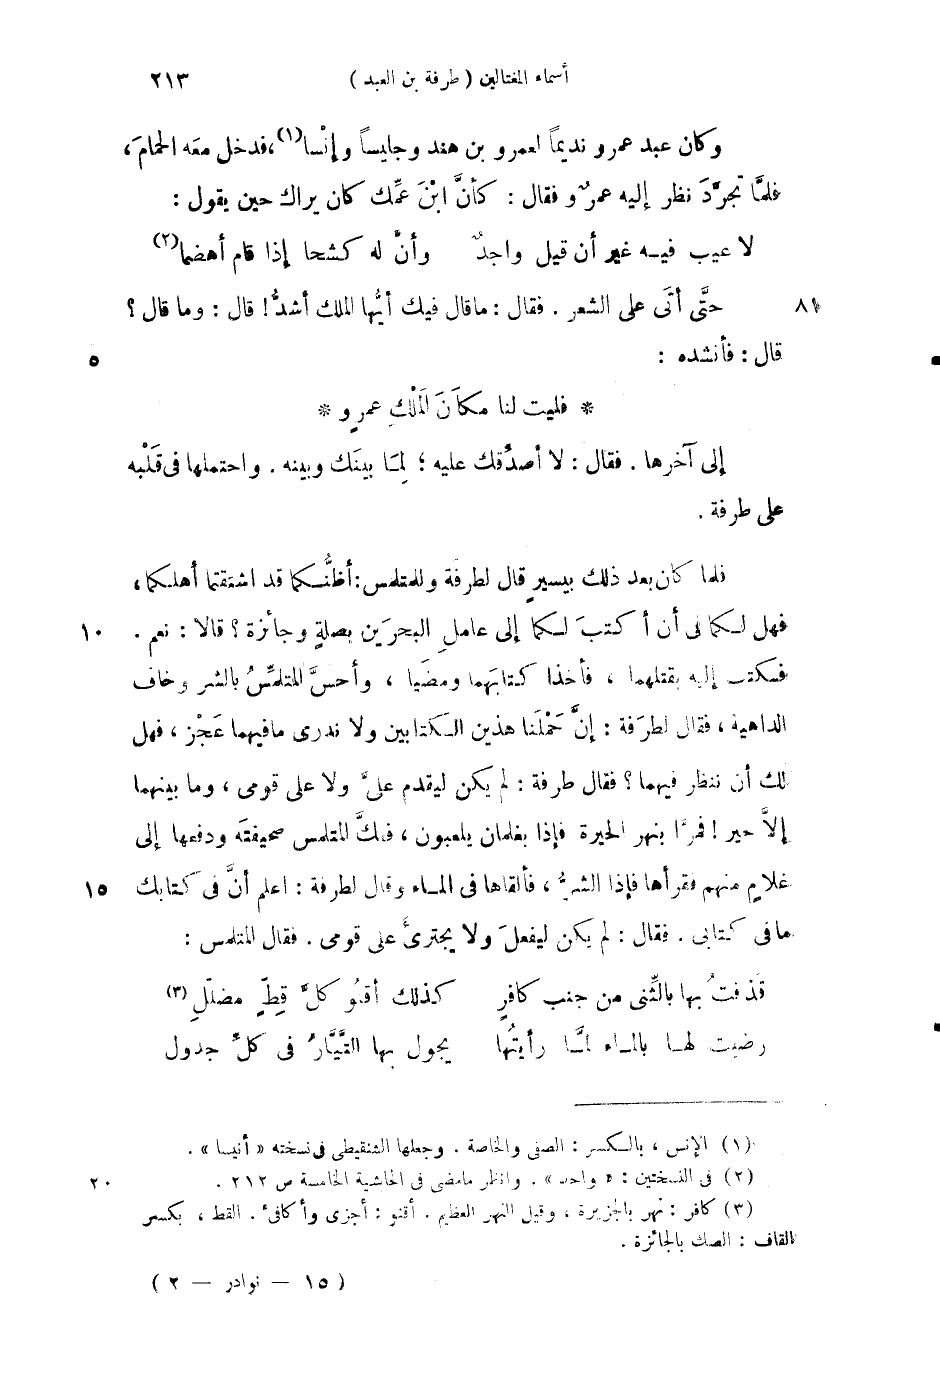 أسماء المغتالين ( طرفة بن العبد ) ٢١٣
وكان عبد عمرو نديماً لعمرو بن هند وجليساً وإنْسا(١)، فدخل معَه الحمامَ،
فلمَّا تجرَّدَ نظر إليه عمرٌو فقال : كأنَّ ابْنَ عمِّك كان يراك حين يقول :
لا عيب فيه غير أن قيل واجدٌ وأنَّ له كشحا إذا قام أهضما(٢)
حتَّى أتَى على الشعر . فقال : ماقال فيك أيُّها الملك أشدُّ! قال : وما قال ؟ ٨١
قال : فأنشده : ٥
* فليت لنا مكاَنَ المَلْكِ عمرٍو *
إلى آخرها . فقال : لا أصدِّقك عليه ؛ لِمَا بينَك وبينه . واحتملها فى قَلْبه
على طرفة .
فلما كان بعد ذلك بيسيرٍ قال لطرفة وللمتلمس: أظنُّكما قد اشتقتما أهلكما،
فهل لكما فى أن أكتبَ لكما إلى عاملِ البحرَين بصلةٍ وجائزة ؟ قالا : نعم . ١٠
فكتب إليه بقتلهما ، فأخذا كتابَهما ومضَيا ، وأحسَّ المتلمِّسُ بالشر وخاف
الداهية ، فقال لطرَفة : إنَّ حَمْلَنا هذين الكتابين ولا ندرى مافيهما عَجْز ، فهل
لك أن ننظر فيهما ؟ فقال طرفة : لم يكن ليقدم علىَّ ولا على قومى ، وما بينهما
إلاَّ حير ! فمرَّا بنهر الحيرة فإذا بغلمان يلعبون ، ففكَّ المتلمس صحيفتَه ودفعها إلى
غلامٍ منهم فقرأها فإذا الشرُّ ، فألقاها فى الماء وقال لطرفة : اعلم أنَّ فى كتابك ١٥
مافى كتابى . فقال : لم يكن ليفعلَ ولا يجترئَ على قومى . فقال المتلمس :
قذفتُ بها بالثِّنى من جنب كافرٍ كذلك أقنُو كلَّ قِطٍّ مضلّلِ(٣)
رضيت لها بالماء لمَّا رأيتُها يجول بها التَّيَّارُ فى كلِّ جدول
(١) الإنس ، بالكسر : الصفى والخاصة . وجعلها الشنقيطى فى نسخته « أنيسا » .
(٢) فى النسختين : « واحد » . وانظر مامضى فى الحاشية الخامسة ص ٢١٢ . ٢٠
(٣) كافر : نهر بالجزيرة ، وقيل النهر العظيم . أقنو : أجزى وأكافئ . القط ، بكسر
القاف : الصك بالجائزة .
( ١٥ — نوادر — ٢ )